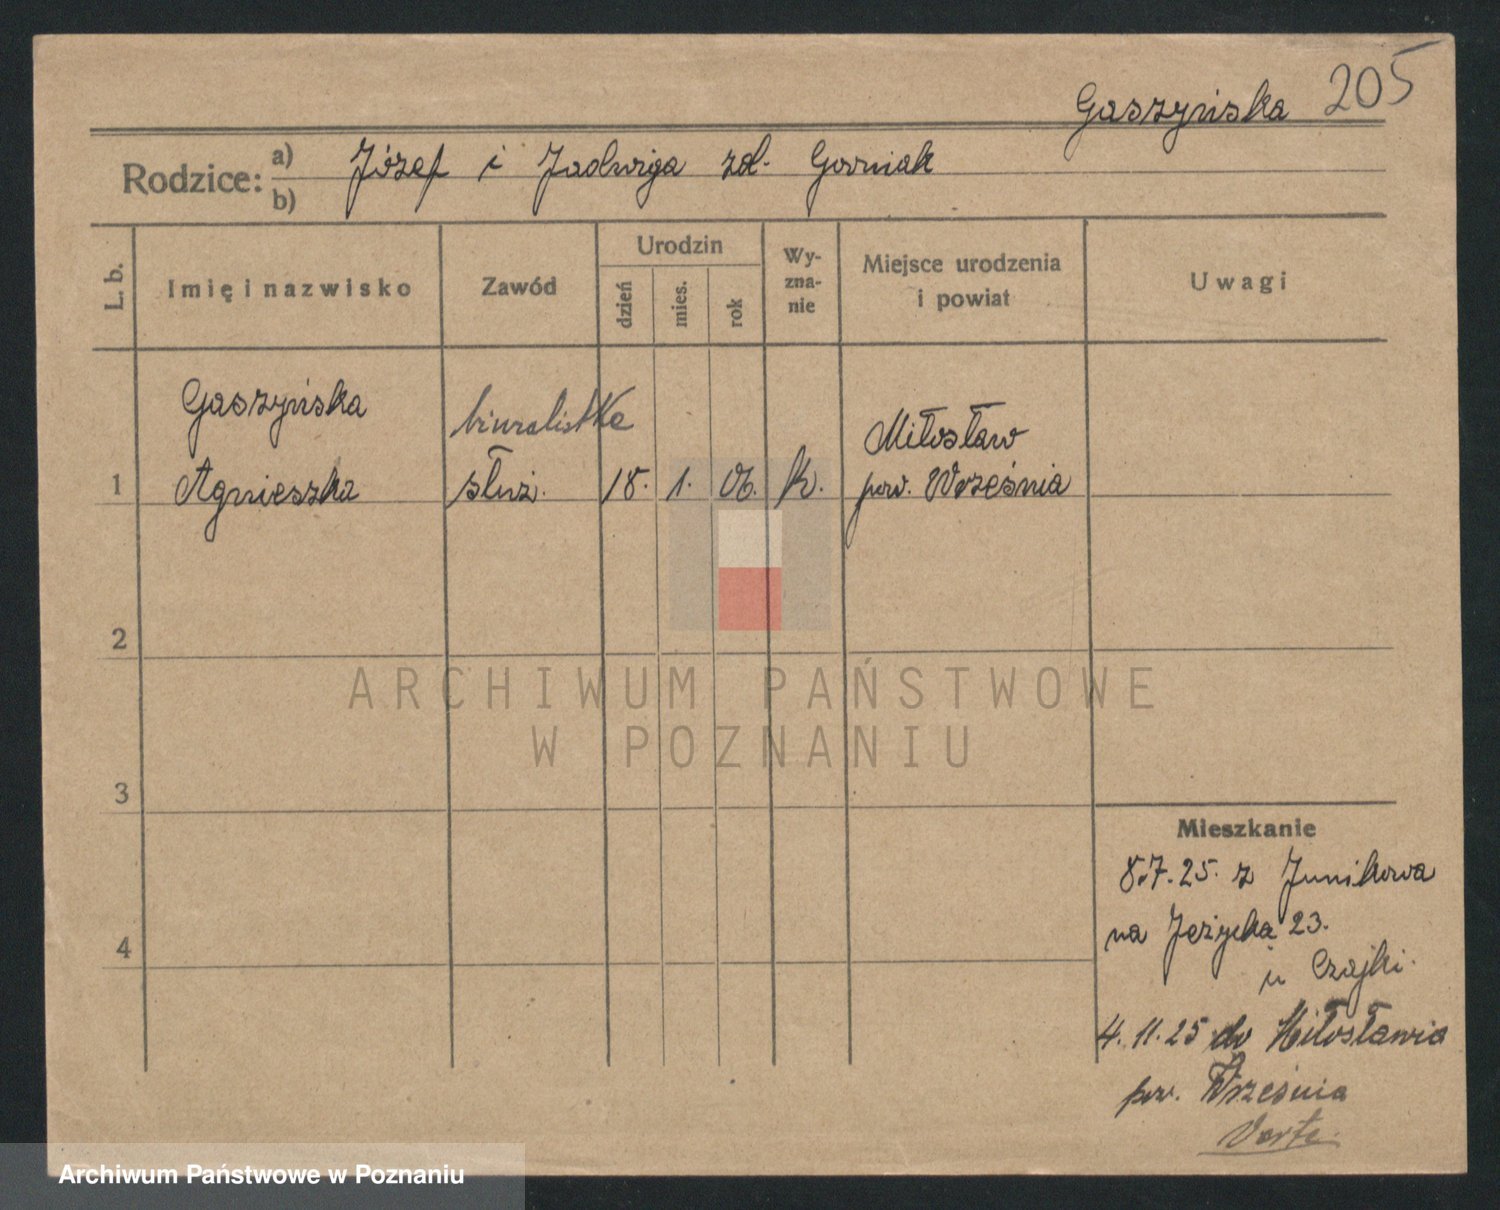 Gaszyńska 205
Rodzice: a) Józef i Jadwiga zd. Gorniak
b)
L. b. Imię i nazwisko Zawód Urodzin dzień mies. rok Wyznanie Miejsce urodzenia i powiat Uwagi
Gaszyńska biuralistka Miłosław
1 Agnieszka służ. 18. 1. 06. k. pow. Września
2
ARCHIWUM PAŃSTWOWE
W POZNANIU
3
Mieszkanie
8.7.25. z Junikowa
na Jeżycka 23.
4 u Czajki.
4.11.25 do Miłosławia
pow. Września
Verte.
Archiwum Państwowe w Poznaniu